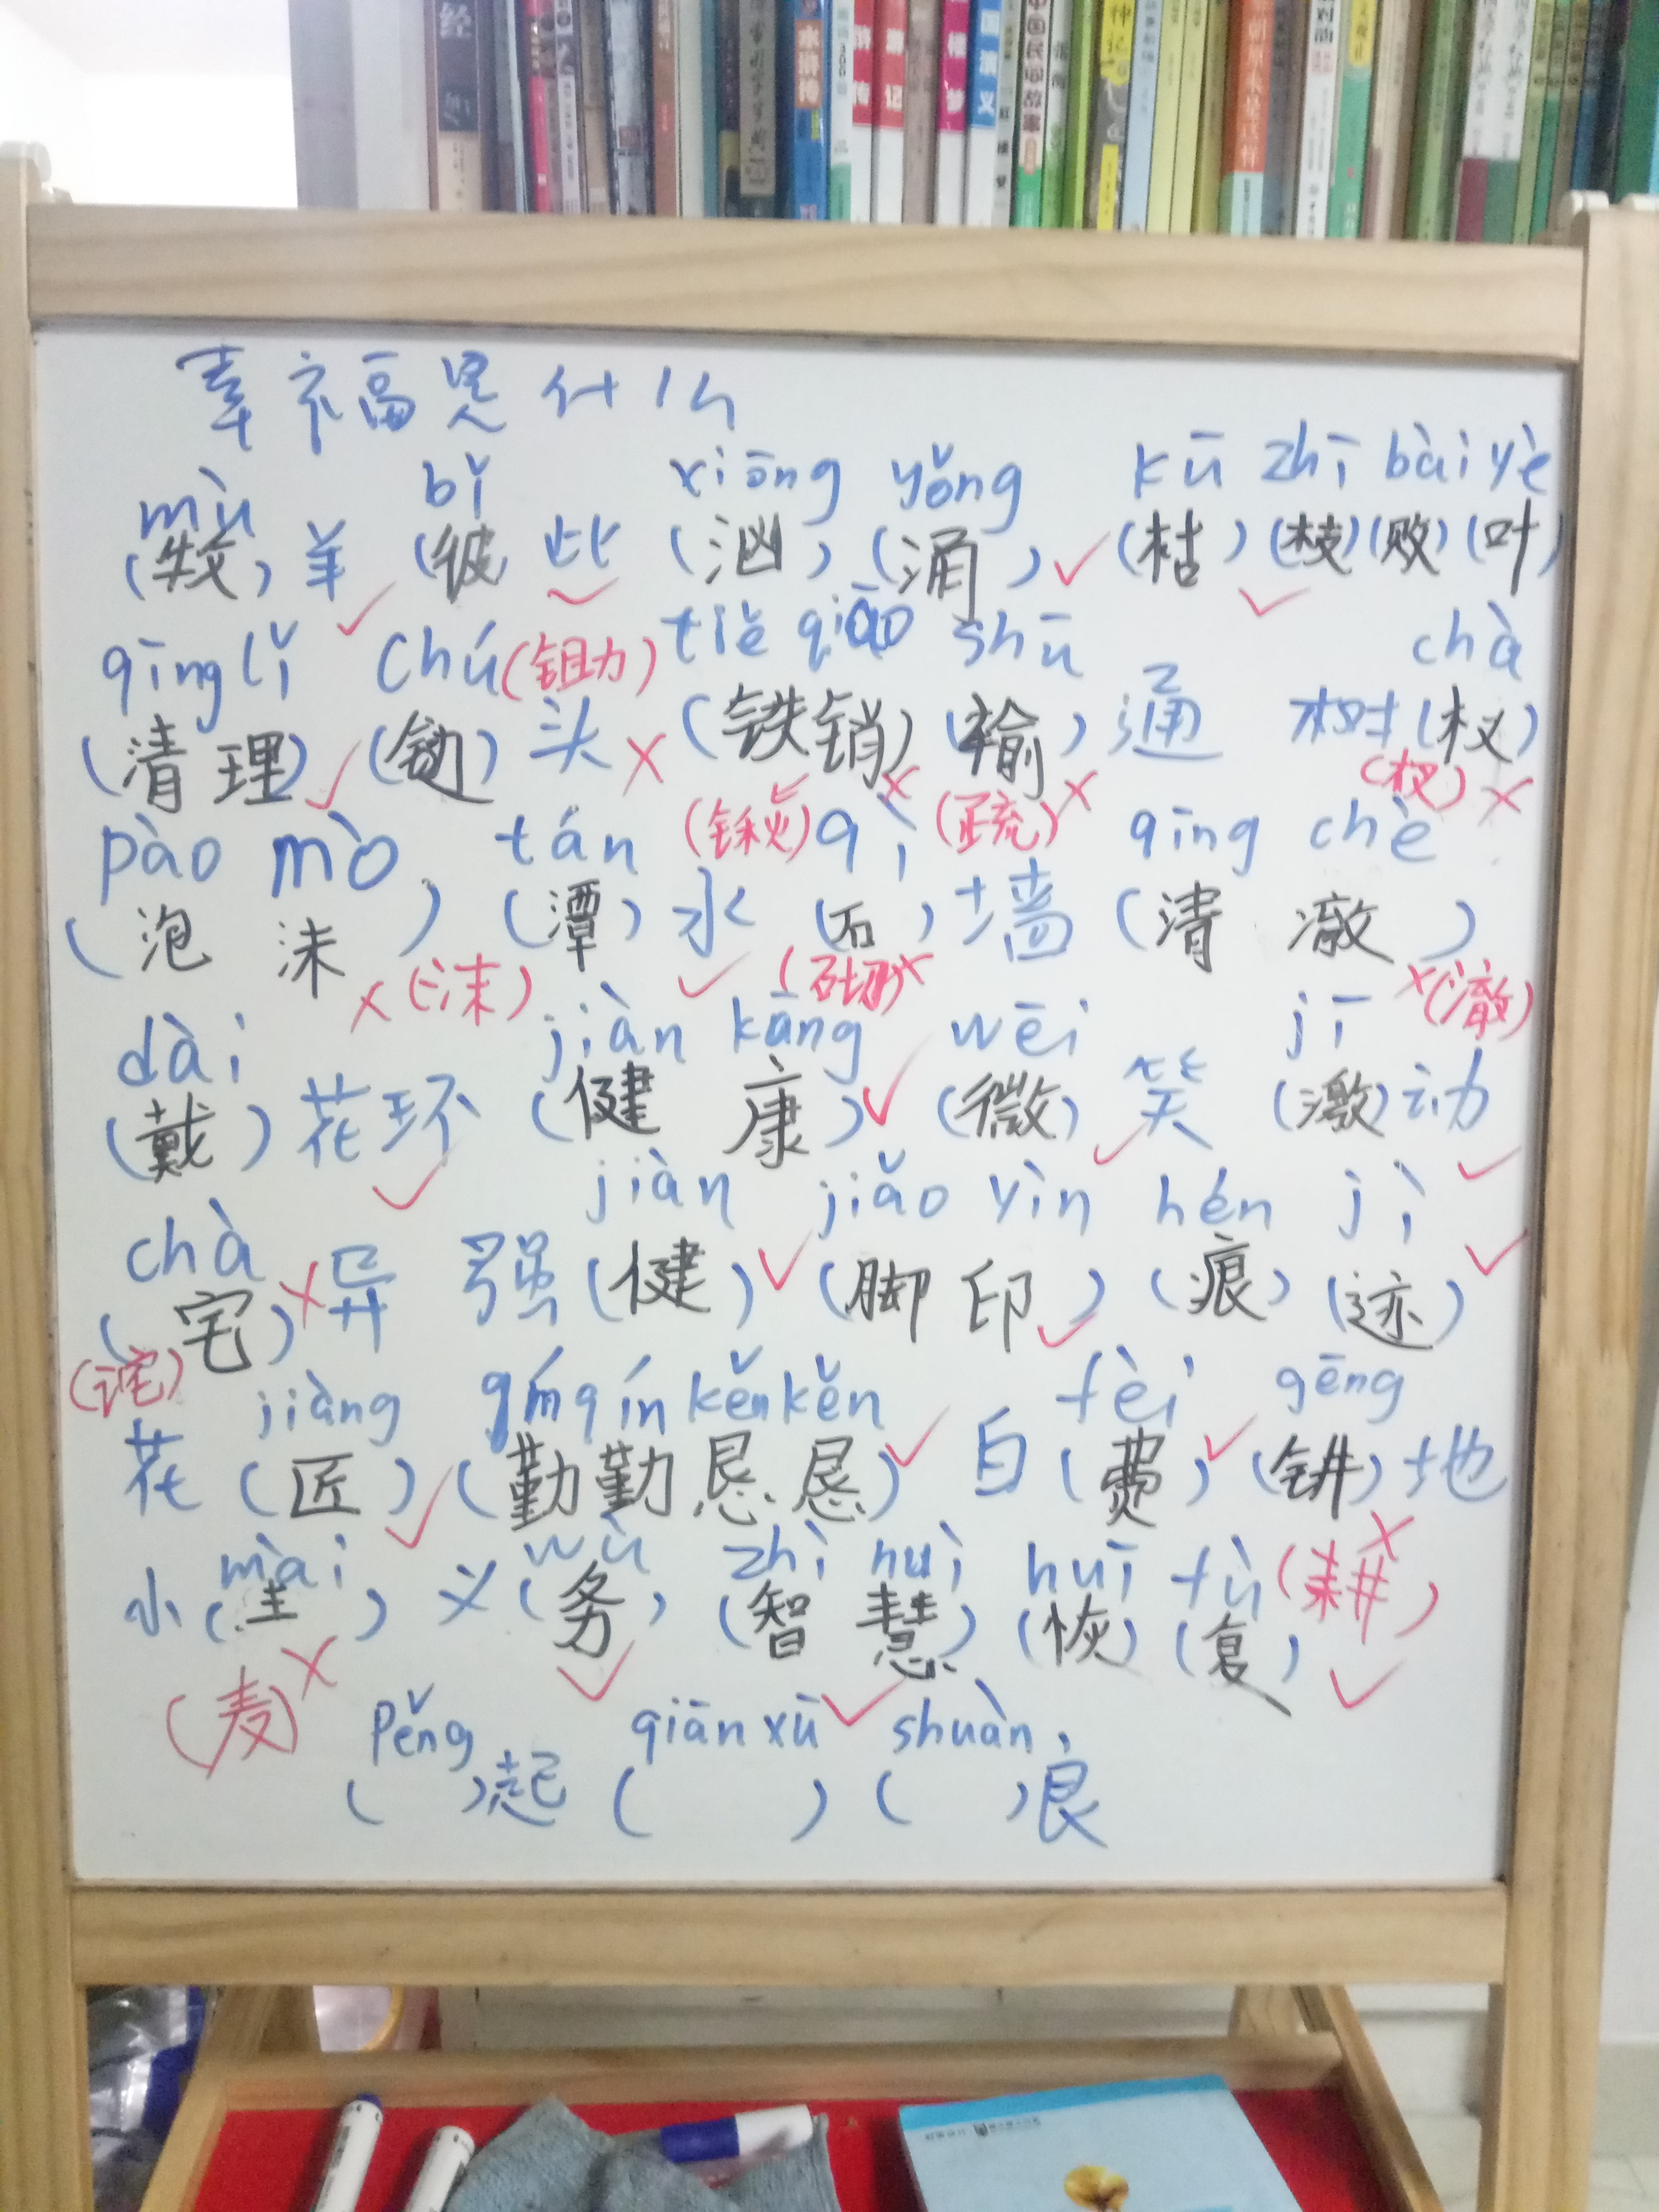 水浒传
中国民间故事
幸福是什么
mù bǐ xiōng yǒng kū zhī bài yè
(牧)羊 (彼)此 (汹)(涌) (枯)(枝)(败)(叶)
qīng lǐ chú (锄) tiě qiāo shū chà
(清理) (锄)头 (铁销)(输)通 树(杈)
(锹) (疏) (杈)
pào mò tán qì qīng chè
(泡沫) (潭)水 (石)墙 (清澈)
(沫) (砌) (澈)
dài jiàn kāng wēi jī
(戴)花环 (健康) (微)笑 (激)动
chà jiàn jiǎo yìn hén jì
(宅)异 强(健) (脚印) (痕)(迹)
(诧)
jiàng qín qín kěn kěn fèi gēng
花(匠) (勤勤恳恳) 白(费) (耕)地
mài wù zhì huì huī fù (耕)
小( ) 义(务) (智慧) (恢)(复)
(麦)
pěng qiān xū shuàn
( )起 ( ) ( )良